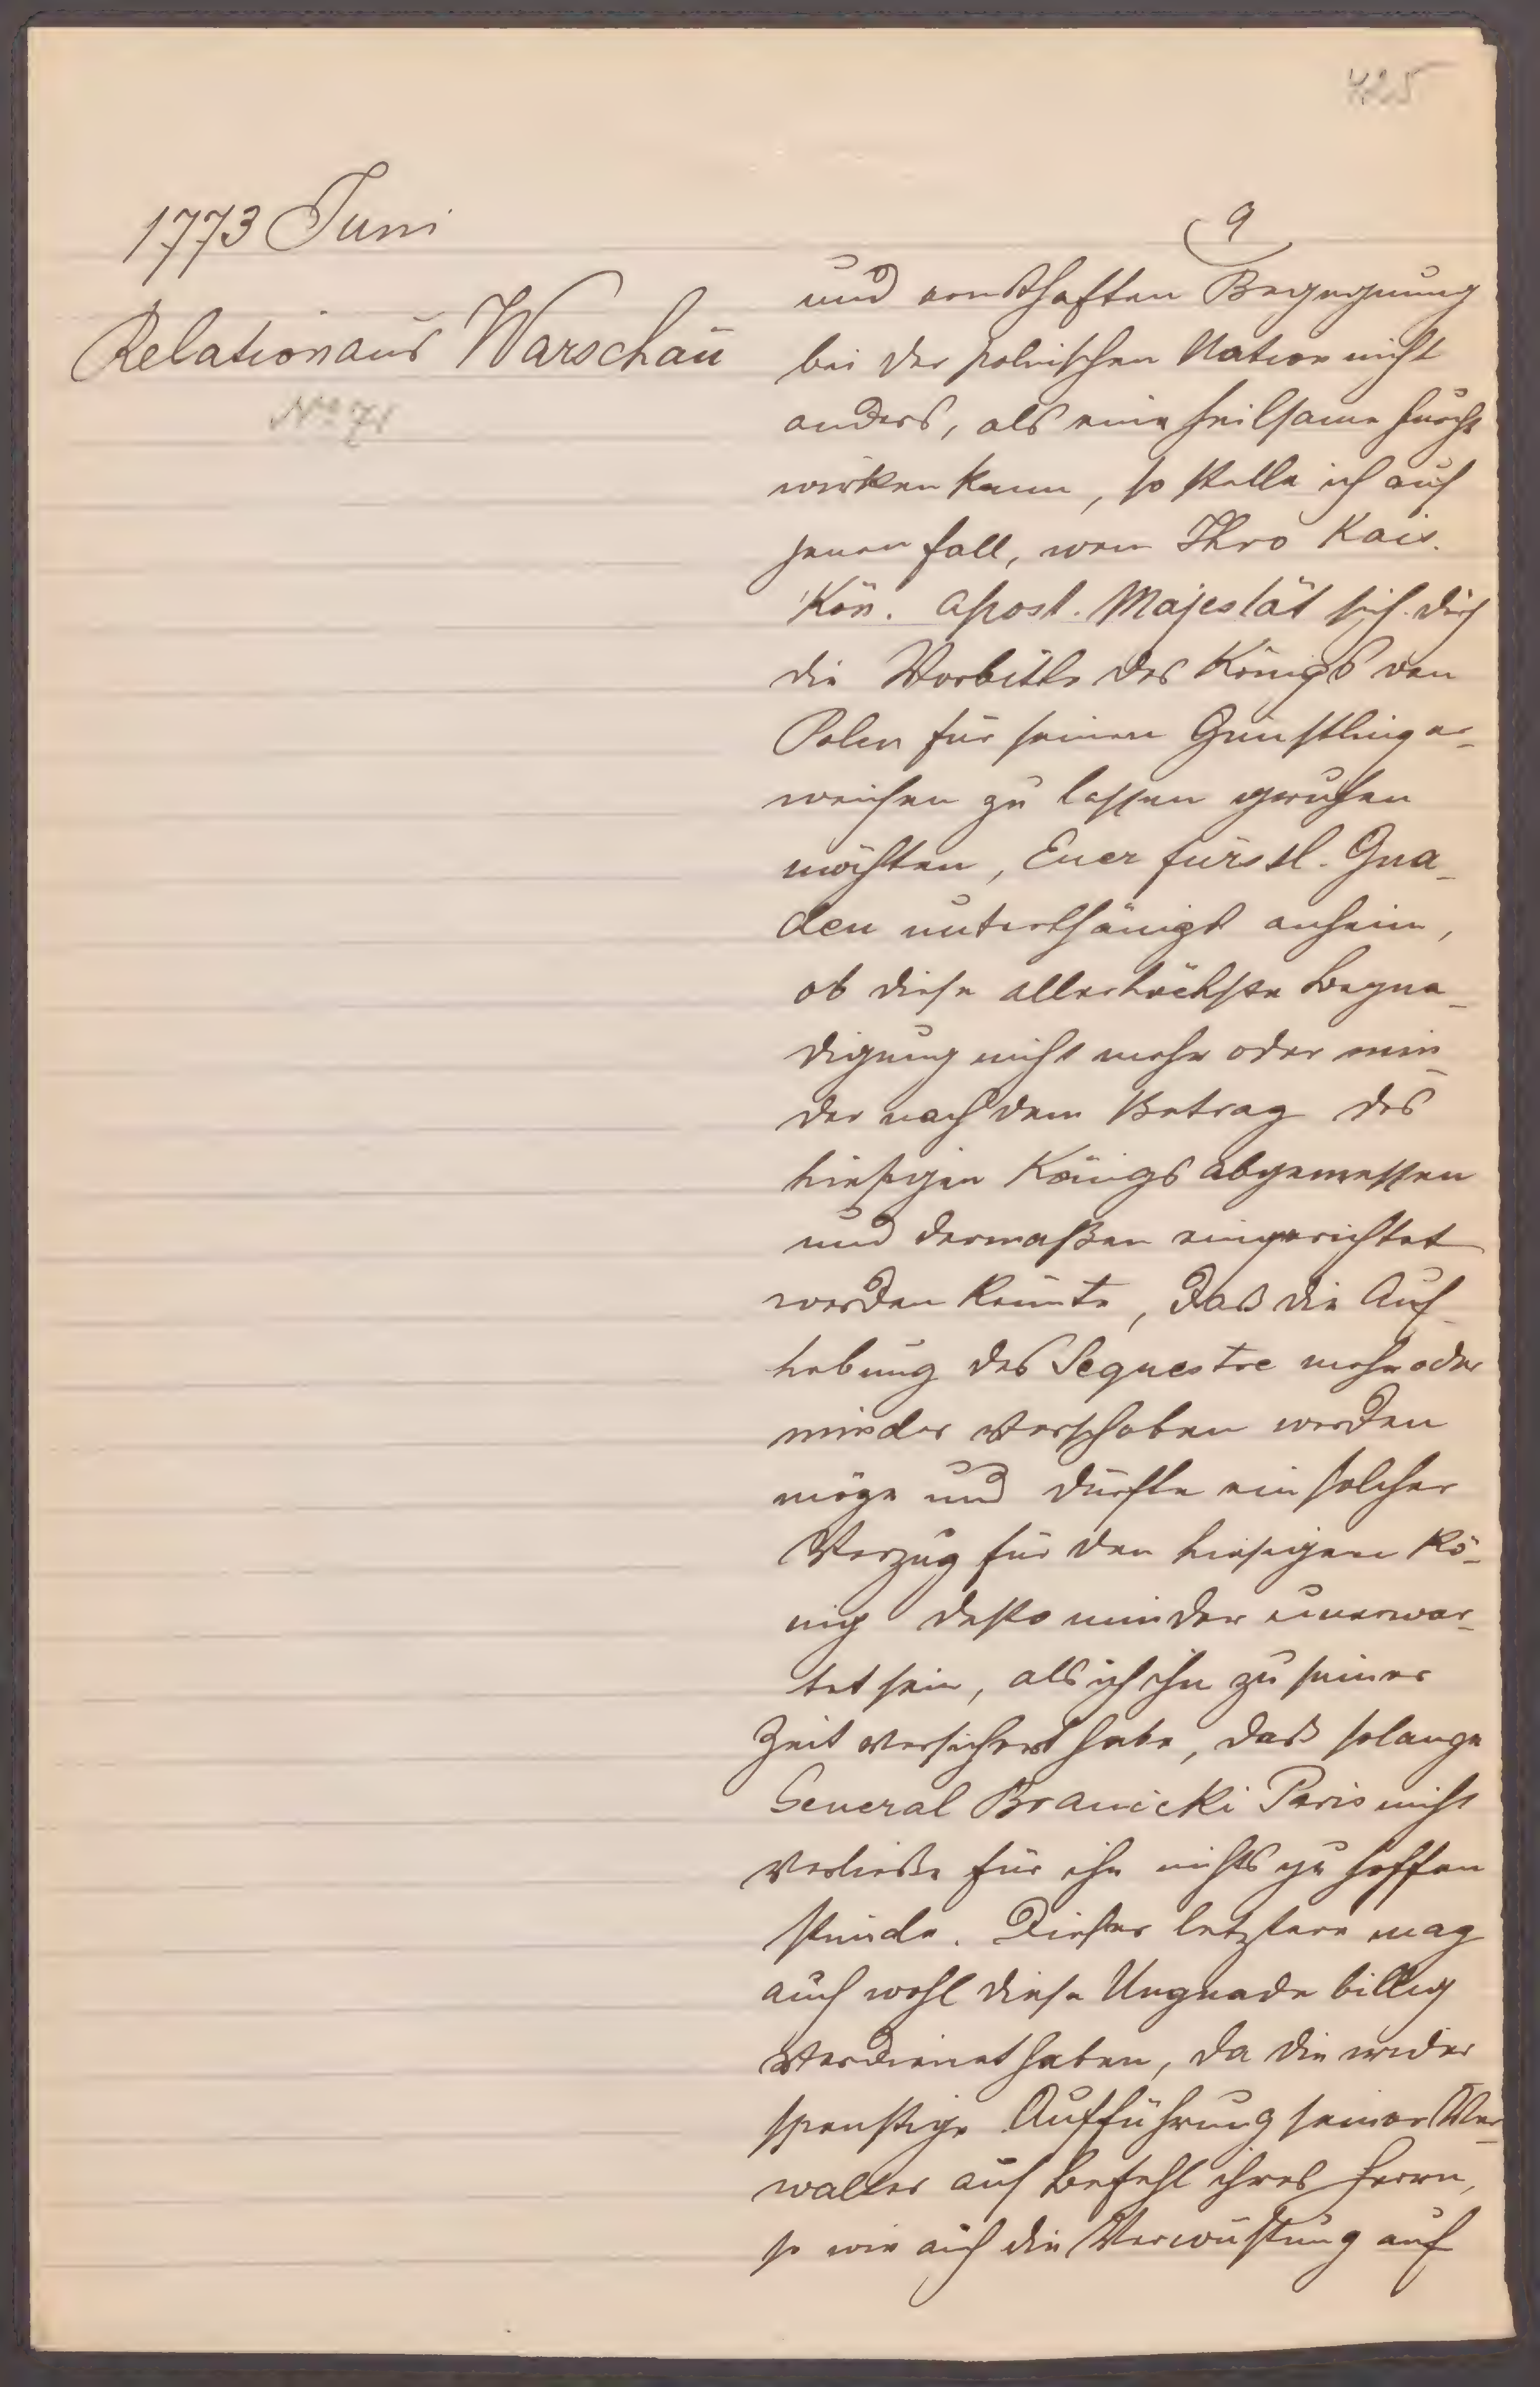 425
1773 Juni
Relation aus Warschau
No 71
9
und ernsthaften Begegnung
bei der polnischen Nation nicht
anders, als eine heilsame Furcht
wirken kann, so stelle ich auf
jenen Fall, wenn Ihro Kais.
Kön. Apost. Majestät sich durch
die Vorbitte des Königs von
Polen für seinen Günstling er-
weichen zu lassen geruhen
möchten, Euer fürstl. Gna-
den unterthänigst anheim,
ob diese allerhöchste Begna-
digung nicht mehr oder min-
der nach dem Betrag des
hiesigen Königs abgemessen
und dermaßen eingerichtet
werden könnte, daß die Auf-
hebung des Sequestre mehr oder
minder verschoben werden
möge und dürfte ein solcher
Verzug für den hiesigen Kö-
nig desto minder unerwar-
tet sein, als ich ihn zu seiner
Zeit versichert habe, daß solange
General Branicki Paris nicht
verließe für ihn nichts zu hoffen
stünde. Dieser letztere mag
auch wohl diese Ungnade billig
verdienet haben, da die wider
spenstige Aufführung seiner Ver-
walter auf Befehl ihres Herrn,
so wie auch die Verwüstung auf